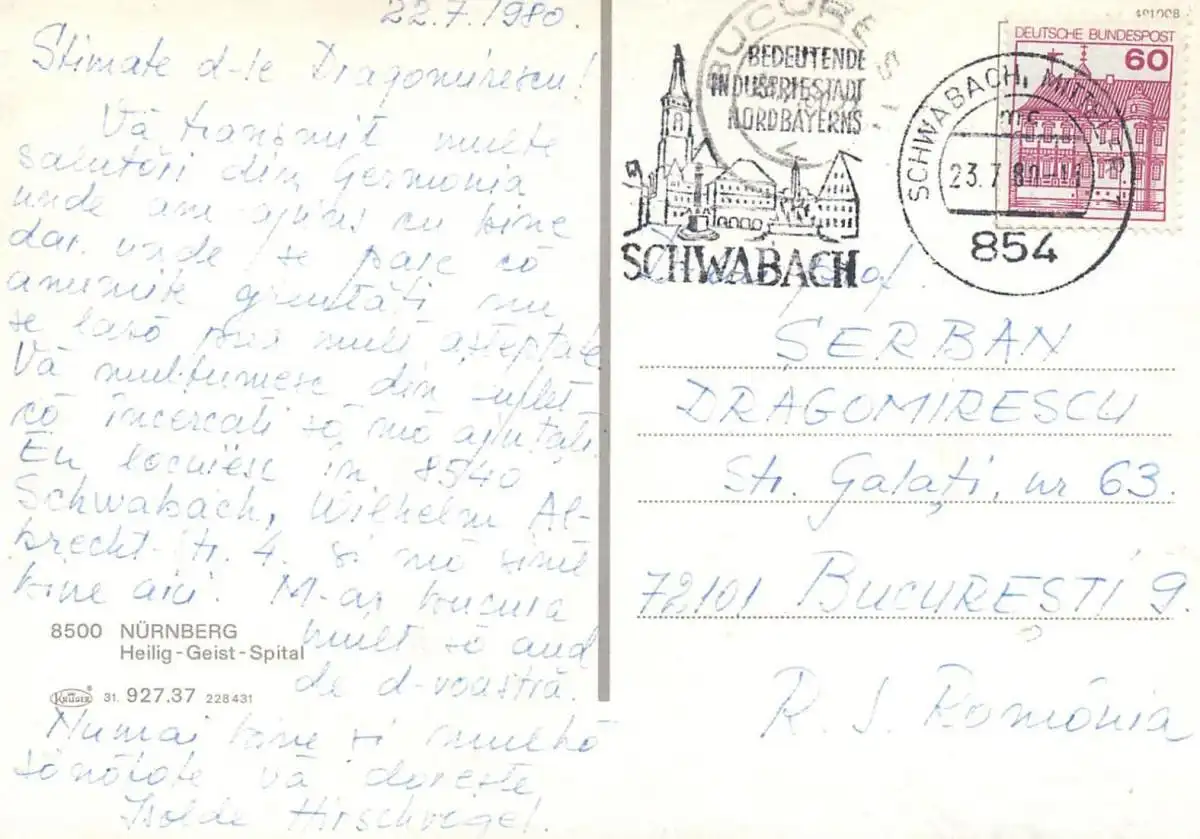 22.7.1980.
Stimate d-le Dragomirescu!
Vă transmit multe
salutări din Germania
unde am ajuns cu bine
dar unde se pare că
anumite greutăți nu
se lasă prea mult așteptate.
Vă mulțumesc din suflet
că încercați să mă ajutați.
Eu locuiesc în 8540
Schwabach, Wilhelm Al-
brecht-Str. 4. și mă simt
bine aici. M-aș bucura
mult să aud
de d-voastră.
Numai bine și multă
sănătate vă dorește
Isolde Hirschvogel.
8500 NÜRNBERG
Heilig-Geist-Spital
KRÜGER 31. 927.37 228431
BUCUREȘ
BEDEUTENDE
INDUSTRIESTADT
NORDBAYERNS
SCHWABACH
DEUTSCHE BUNDESPOST
60
SCHWABACH, MITTELFR
mc
23.7.80-11
854
ȘERBAN
DRAGOMIRESCU
Str. Galați, nr 63.
72101 BUCUREȘTI 9.
R. S. România